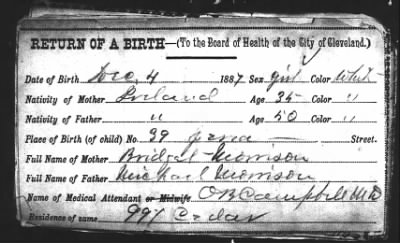 RETURN OF A BIRTH—(To the Board of Health of the City of Cleveland.)
Date of Birth Dec, 4 1887 Sex girl Color White
Nativity of Mother Ireland Age 35 Color "
Nativity of Father " Age 50 Color "
Place of Birth (of child) No 39 Street.
Full Name of Mother Bridget Morrison
Full Name of Father Michael Morrison
Name of Medical Attendant or Midwife OB Campbell MD
Residence of same 997 Cedar